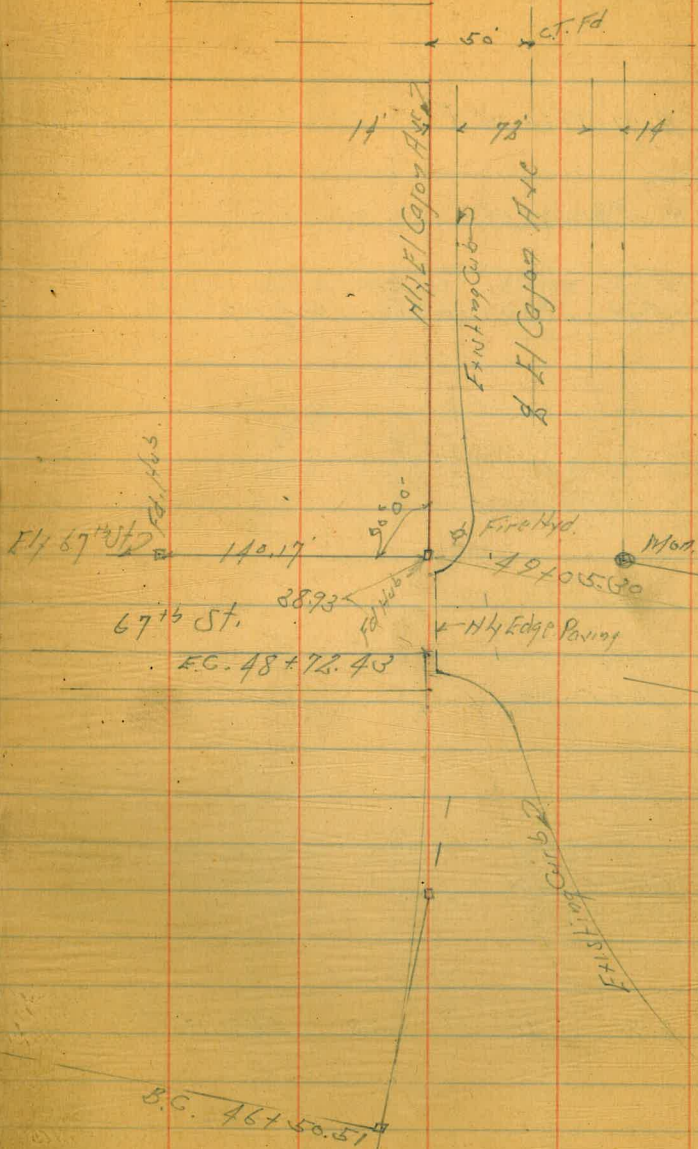 50' C.T. Fd.
14' 72' 14'
N'ly El Cajon Ave
Existing Curb
₵ El Cajon Ave
Fd. Hub
90° 00'
Fire Hyd.
E'ly 67th St
140.17'
49+05.30
Mon.
38.93
Fd Hub
67th St.
N'ly Edge Paving
E.C. 48+72.43
Existing Curb
B.C. 46+50.51